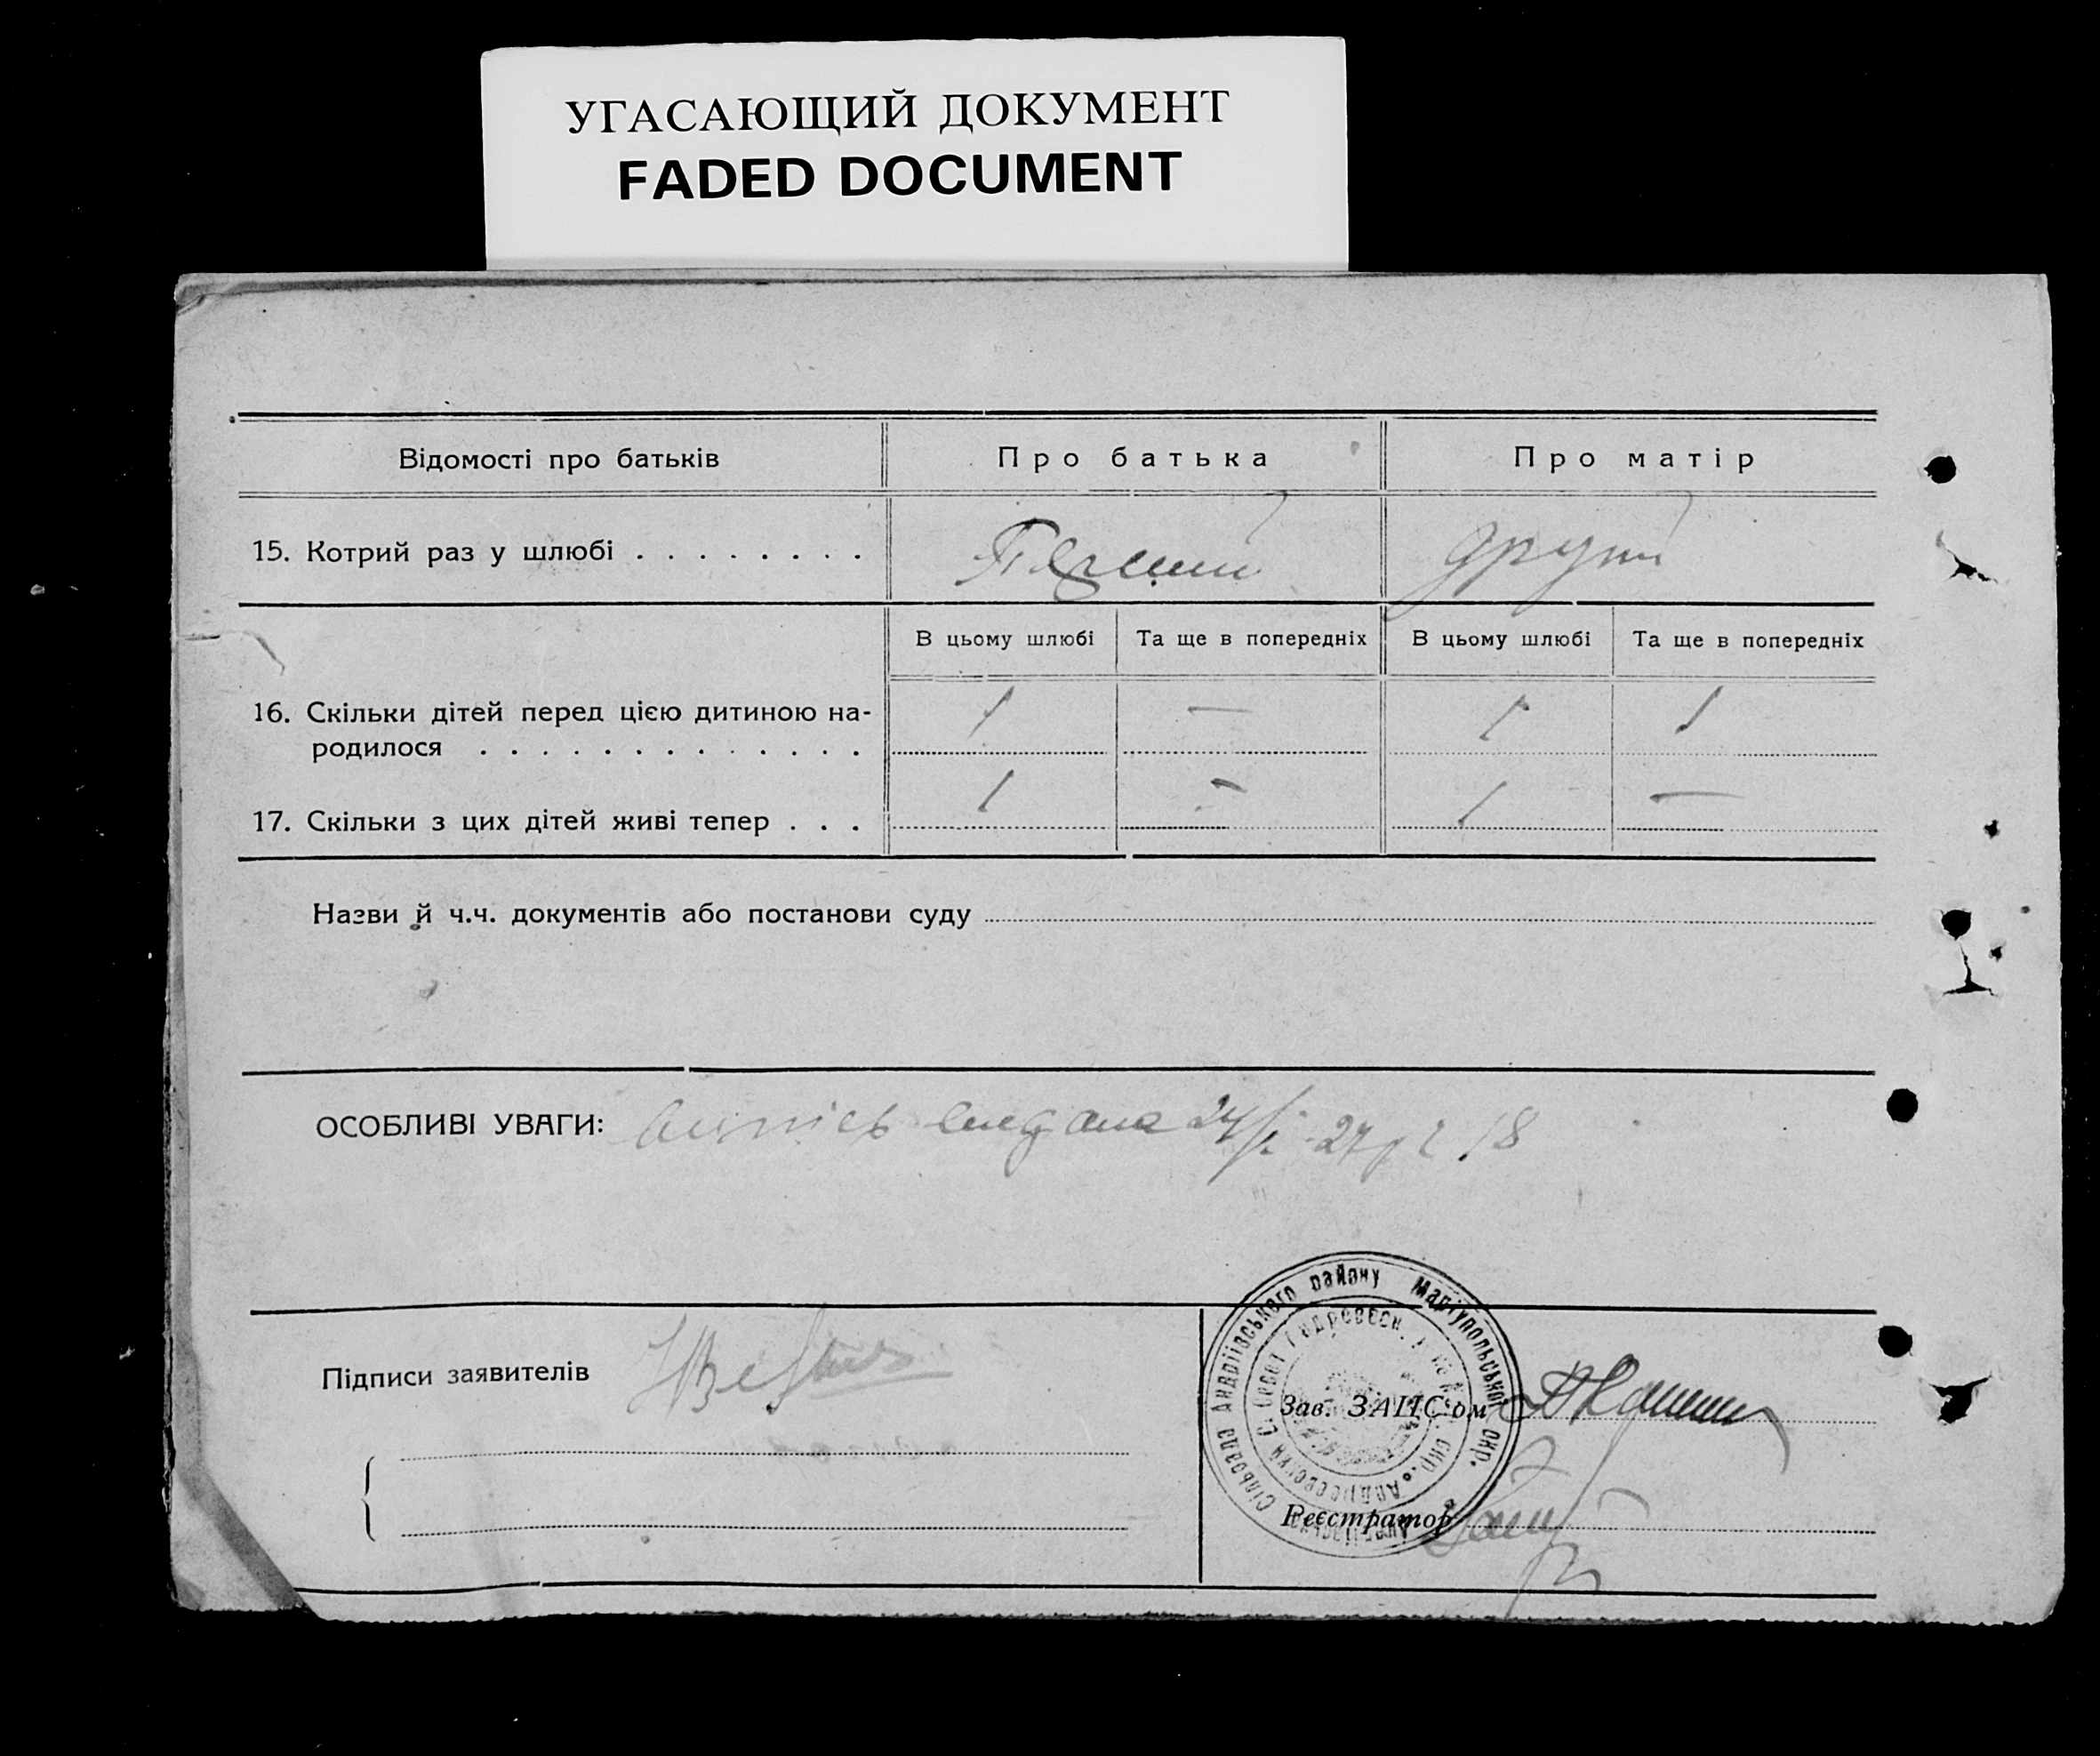 УГАСАЮЩИЙ ДОКУМЕНТ
FADED DOCUMENT
Відомості про батьків Про батька Про матір
15. Котрий раз у шлюбі . . . . . . . . Перший другий
В цьому шлюбі Та ще в попередніх В цьому шлюбі Та ще в попередніх
16. Скільки дітей перед цією дитиною на-
родилося . . . . . . . . . . . . . 1 — 1 1
17. Скільки з цих дітей живі тепер . . . 1 — 1 —
Назви й ч.ч. документів або постанови суду
ОСОБЛИВІ УВАГИ: выпись выдана
Підписи заявителів
Зав. ЗАГС'ом
Реєстратор
Сільрада Андріївського району Маріупольської окр.